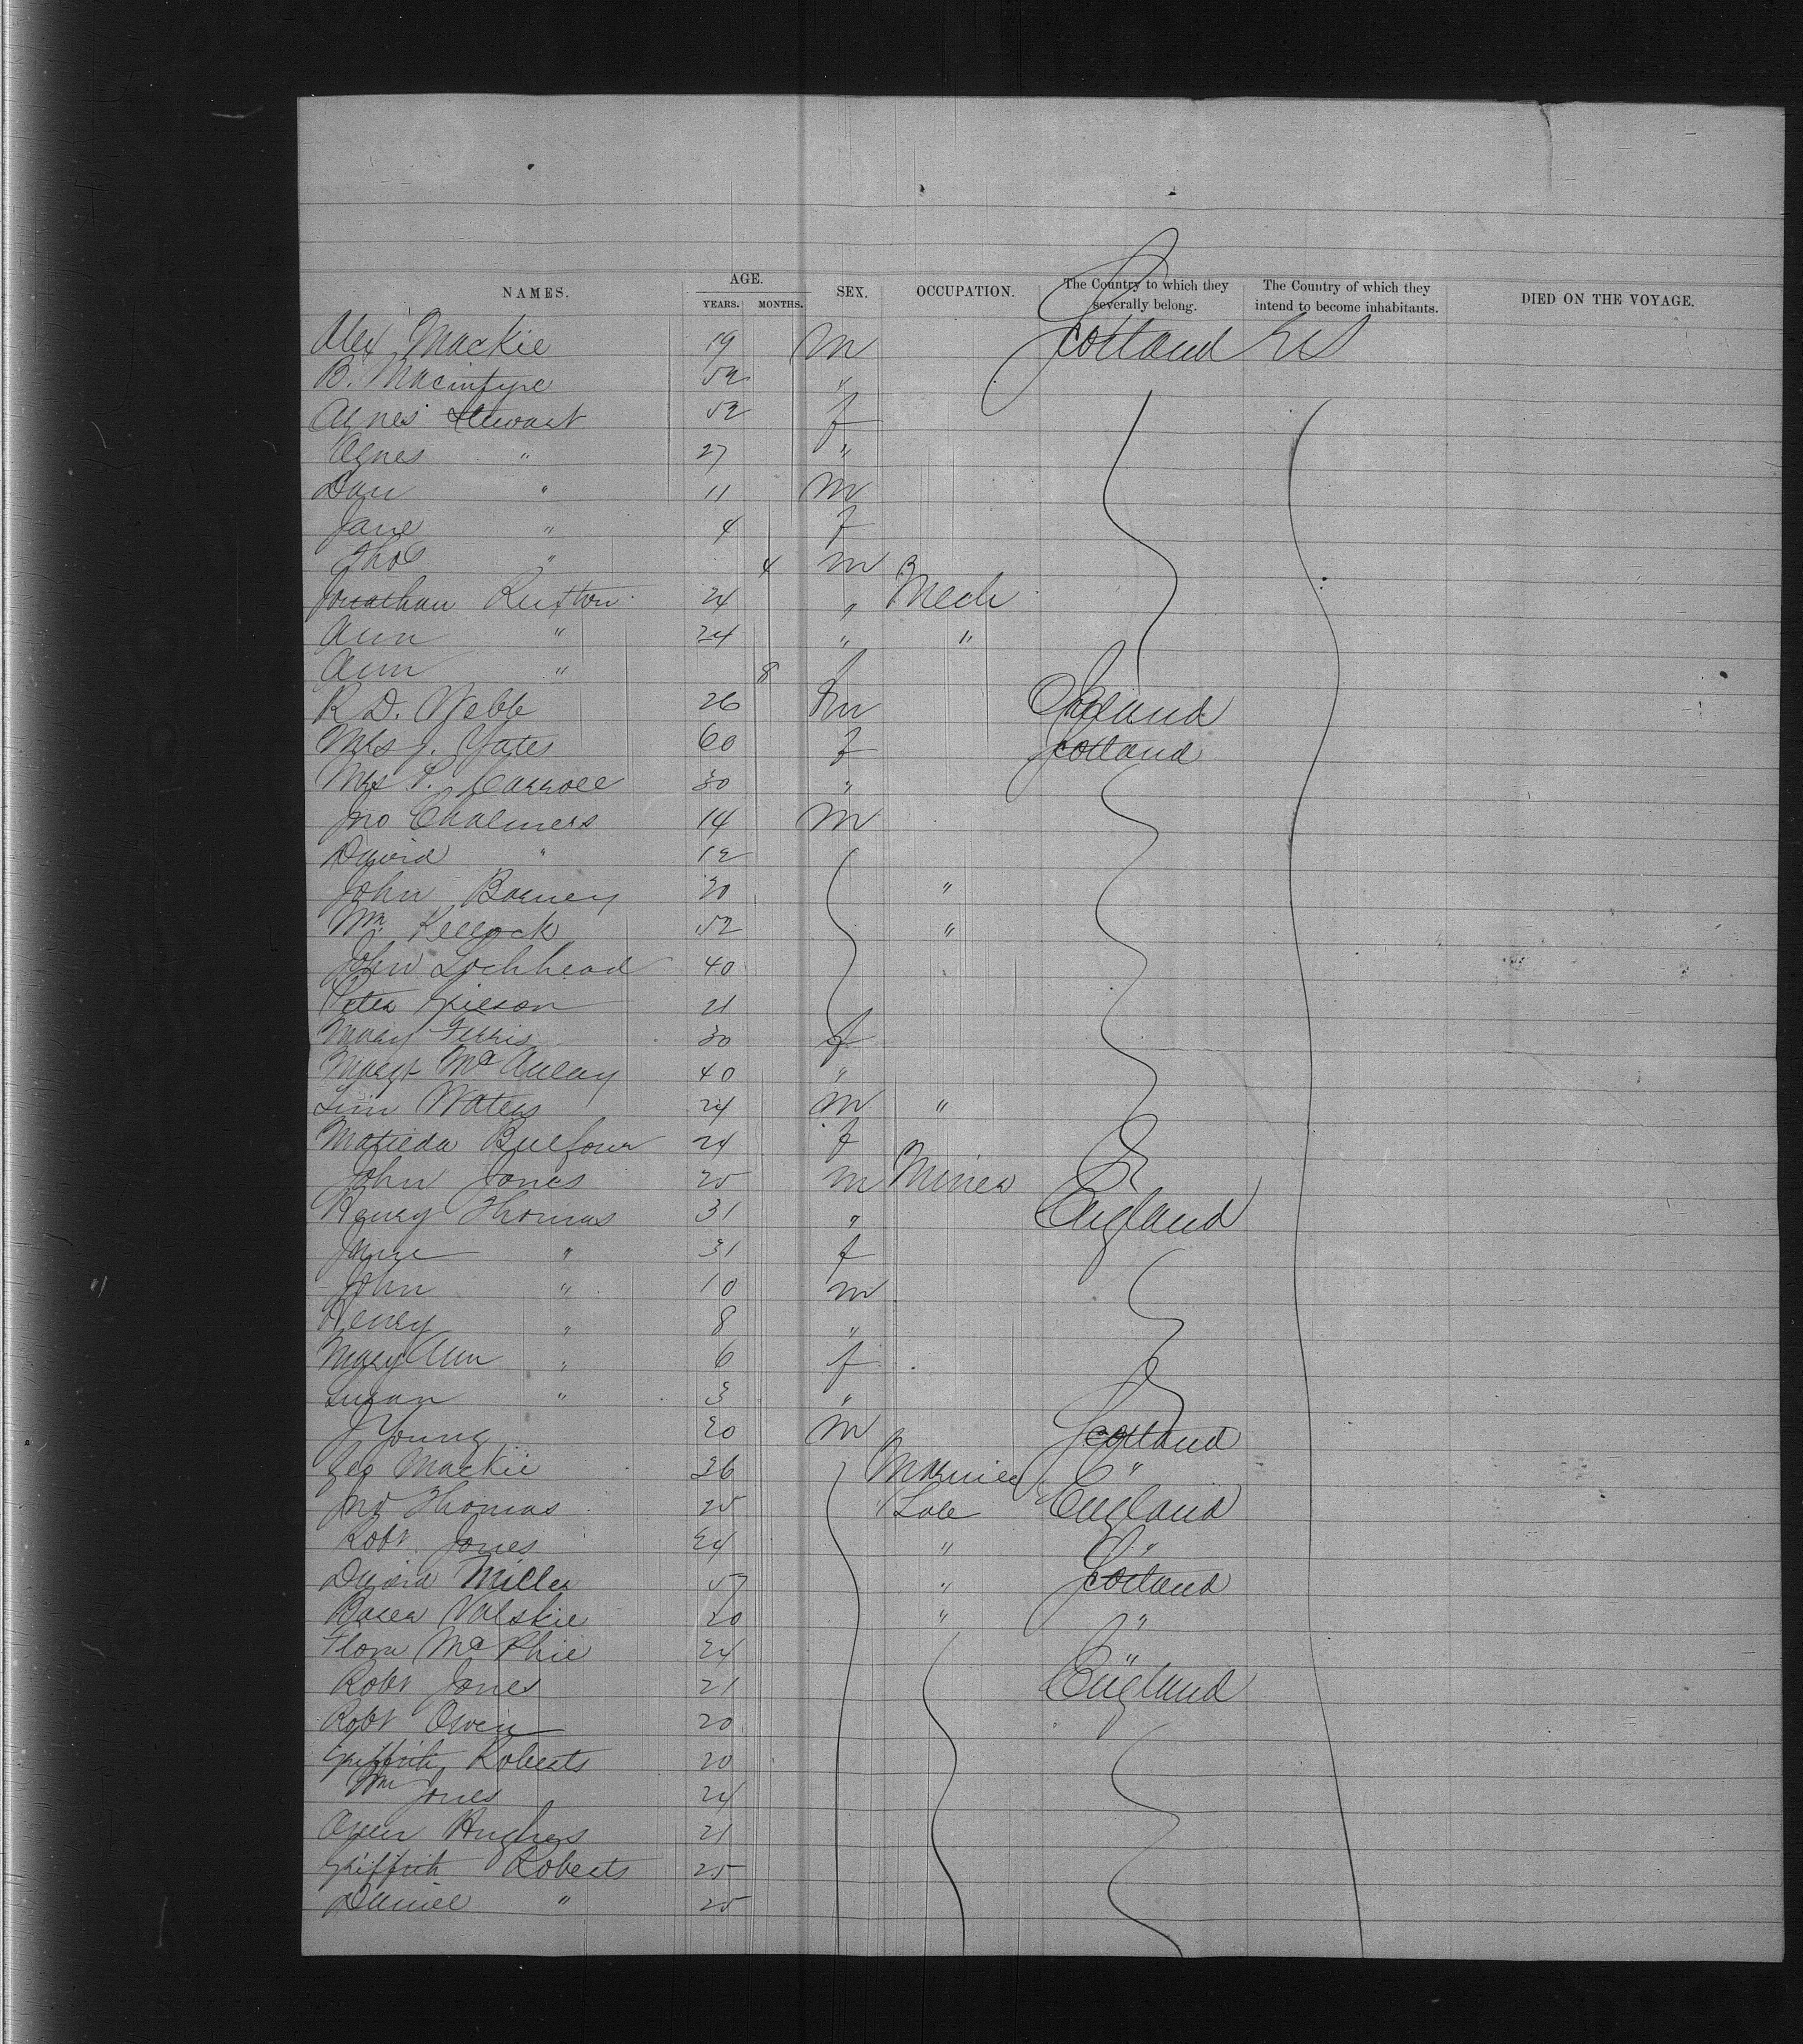 NAMES. AGE. YEARS. MONTHS. SEX. OCCUPATION. The Country to which they severally belong. The Country of which they intend to become inhabitants. DIED ON THE VOYAGE.
Alex Mackie 19 M Scotland US
B. Macintyre 52 "
Agnes Stewart 52 f
Agnes " 27 "
Dan " 11 M
Jane " 4 f
Thos " 4 M
Jonathan 24 " Mech
Ann " 24 " "
Ann " 8 f
R D. Webb 26 m
Mrs J. Yates 60 f Scotland
Mrs P. Carroll 30 "
Jno Chalmers 14 M
David " 12
John Barney "
Wm Kellock 52 "
John Lochhead 40
Peter 21
Mary Ferris 30 f
Margt McAulay 40 "
Waters 24 M "
Matilda Bulfour 24 f
John Jones 25 M Miner
Henry Thomas 31 " England
Jane " 31 f
John " 10 M
Henry " 8 "
Mary Ann " 6 f
Susan " 3 "
J Young M Scotland
Geo Mackie 36 "
Jno Thomas 25 Lab England
Robt Jones 24 " "
David Miller 57 " Scotland
20 " "
Flora McPhie 24 "
Robt Jones 21 England
Robt Owen 20
Griffith Roberts 20
Wm Jones 24
Owen Hughes 21
Griffith Roberts 25
Daniel " 25